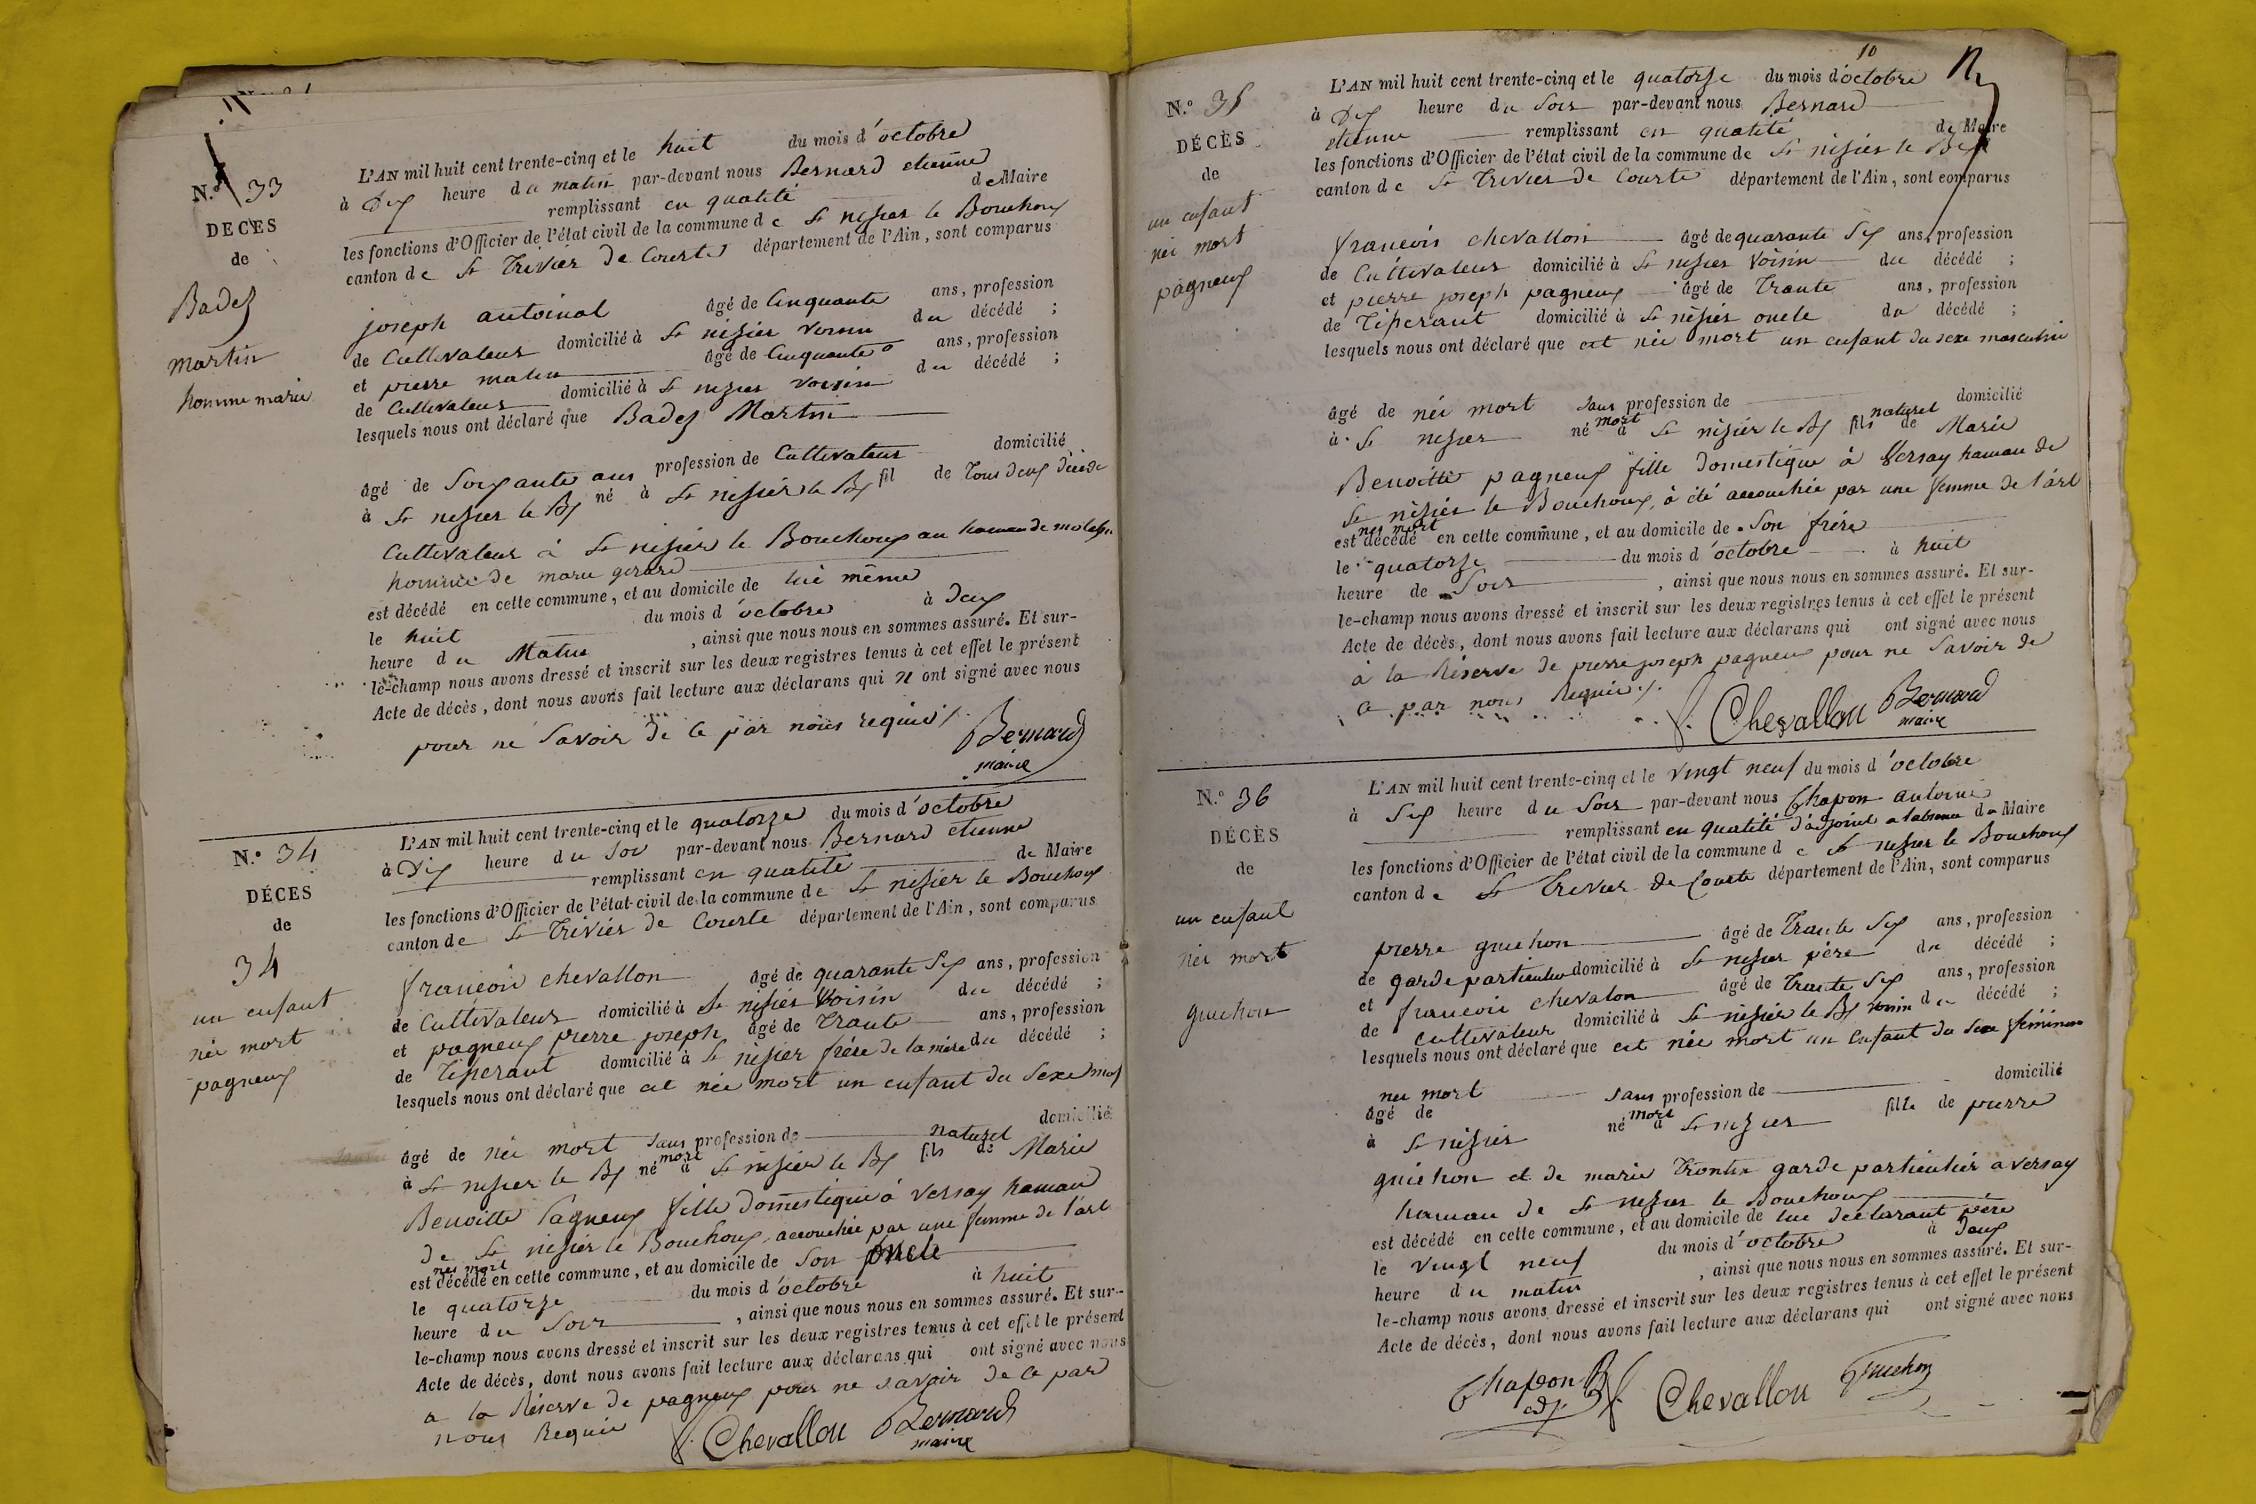 N.º 33
DECES
de
Badez
martin
homme marié
L'AN mil huit cent trente-cinq et le huit du mois d'octobre
à Dix heure du matin par-devant nous Bernard etienne
remplissant en qualité de Maire
les fonctions d'Officier de l'état civil de la commune de St nisier le Bouchoux
canton de St Trivier de Courtes département de l'Ain, sont comparus
joseph antoinat âgé de Cinquante ans, profession
de Cultivateur domicilié à St nisier voisin du décédé ;
et pierre matin âgé de Cinquante ans, profession
de Cultivateur domicilié à St nisier voisin du décédé ;
lesquels nous ont déclaré que Badez Martin
âgé de Soixante ans profession de Cultivateur domicilié
à St nisier le Bx né à St nisier le Bx fil de Tous deux décédé
Cultivateur à St nisier le Bouchoux au hameau de
homme de marie gerard
est décédé en cette commune, et au domicile de lui même
le huit du mois d'octobre à deux
heure du Matin , ainsi que nous nous en sommes assuré. Et sur-
le-champ nous avons dressé et inscrit sur les deux registres tenus à cet effet le présent
Acte de décès, dont nous avons fait lecture aux déclarans qui n ont signé avec nous
pour ne Savoir de ce par nous requis /.
Bernard
maire
N.º 34
DÉCES
de
34
un enfant
née mort
pagneux
L'AN mil huit cent trente-cinq et le quatorze du mois d'octobre
à Dix heure du Soir par-devant nous Bernard etienne
remplissant en qualité de Maire
les fonctions d'Officier de l'état civil de la commune de St nisier le Bouchoux
canton de St Trivier de Courte département de l'Ain, sont comparus
francois chevallon âgé de quarante Six ans, profession
de Cultivateur domicilié à St nisier Voisin du décédé ;
et pagneux pierre joseph âgé de Trante ans, profession
de Tiperant domicilié à St nisier frère de la mère du décédé ;
lesquels nous ont déclaré que est née mort un enfant du Sexe mas
âgé de née mort Sans profession de domicilié
à St nisier le Bx né mort à St nisier le Bx fils naturel de Marie
Benoitte Pagneux fille Domestique à Versay hameau
De St nisier le Bouchoux, accouchée par une femme de l'art
nee mort
est décédé en cette commune, et au domicile de Son oncle
le quatorze du mois d'octobre à huit
heure du Soir , ainsi que nous nous en sommes assuré. Et sur-
le-champ nous avons dressé et inscrit sur les deux registres tenus à cet effet le présent
Acte de décès, dont nous avons fait lecture aux déclarans qui ont signé avec nous
a la Réserve de pagneux pour ne savoir de ce par
nous Requis
f. Chevallon Bernard
maire
10
N.º 35
DÉCÈS
de
un enfant
née mort
pagneux
L'AN mil huit cent trente-cinq et le quatorze du mois d'octobre
à Dix heure du Soir par-devant nous Bernard
etienne remplissant en qualité de Maire
les fonctions d'Officier de l'état civil de la commune de St nisier le Bx
canton de St Trivier de Courte département de l'Ain, sont comparus
francois chevallon âgé de quarante Six ans, profession
de Cultivateur domicilié à St nisier Voisin du décédé ;
et pierre joseph pagneux âgé de Trante ans, profession
de Tiperant domicilié à St nisier oncle du décédé ;
lesquels nous ont déclaré que est née mort un enfant du sexe masculin
âgé de née mort Sans profession de domicilié
à St nisier né mort à St nisier le Bx fils naturel de Marie
Benoitte pagneux fille Domestique à Versay hameau de
St nisier le Bouchoux, à été accouchée par une femme de l'art
nee mort
est décédé en cette commune, et au domicile de Son frère
le quatorze du mois d'octobre à huit
heure de Soir , ainsi que nous nous en sommes assuré. Et sur-
le-champ nous avons dressé et inscrit sur les deux registres tenus à cet effet le présent
Acte de décès, dont nous avons fait lecture aux déclarans qui ont signé avec nous
à la Réserve de pierre joseph pagneux pour ne Savoir de
ce par nous Requis /.
f. Chevallon Bernard
maire
N.º 36
DÉCÈS
de
un enfant
née mort
guichon
L'AN mil huit cent trente-cinq et le vingt neuf du mois d'octobre
à Six heure du Soir par-devant nous Chapon antoine
remplissant en qualité d'adjoint a l'absence du Maire
les fonctions d'Officier de l'état civil de la commune de St nisier le Bouchoux
canton de St Trivier de Courte département de l'Ain, sont comparus
pierre guichon âgé de Trante Six ans, profession
de garde particulier domicilié à St nisier père du décédé ;
et francois chevalon âgé de Trante Six ans, profession
de cultivateur domicilié à St nisier le Bx voisin du décédé ;
lesquels nous ont déclaré que est née mort un Enfant du Sexe féminin
nee mort
âgé de Sans profession de domicilié
à St nisier né mort à St nisier fille de pierre
guichon et de marie Trontin garde particulier a versay
hameau de St nisier le Bouchoux
est décédé en cette commune, et au domicile de lui declarant père
le vingt neuf du mois d'octobre à Deux
heure du matin , ainsi que nous nous en sommes assuré. Et sur-
le-champ nous avons dressé et inscrit sur les deux registres tenus à cet effet le présent
Acte de décès, dont nous avons fait lecture aux déclarans qui ont signé avec nous
Chapon
adj. f. Chevallon Guichon